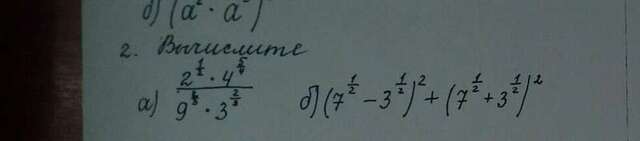 б) (a² · a
2. Вычислите
а) (2^(1/2) · 4^(5/4)) / (9^(1/3) · 3^(2/3)) б) (7^(1/2) − 3^(1/2))² + (7^(1/2) + 3^(1/2))²